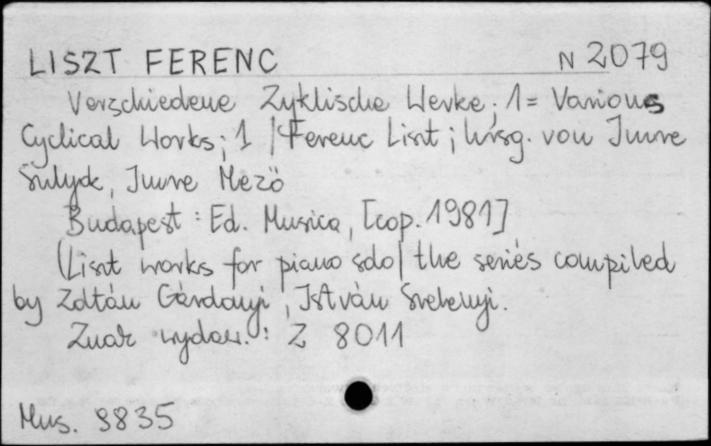 LISZT FERENC N 2079
Verschiedene Zyklische Werke; 1 = Various
Cyclical Works; 1 / Ferenc Liszt; hrsg. von Imre
Sulyok, Imre Mezö
Budapest : Ed. Musica, [cop. 1981]
(Liszt works for piano solo / the series compiled
by Zoltán Gárdonyi, István Szelenyi.
Znak wydaw. : Z 8011
Mus. 9835